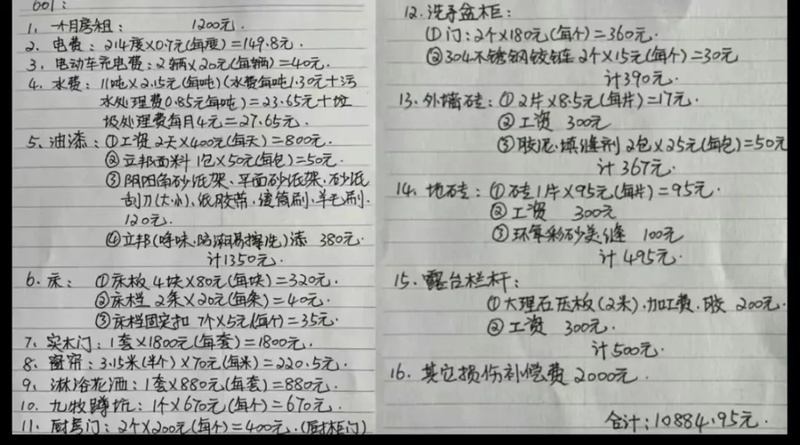 601:
1. 一个月房租: 1200元.
2. 电费: 214度×0.7元(每度)=149.8元.
3. 电动车充电费:2辆×20元(每辆)=40元.
4. 水费: 11吨×2.15元(每吨)(水费每吨1.30元+污
水处理费0.85元每吨)=23.65元+垃
圾处理费每月4元=27.65元.
5. 油漆: ①工资 2天×400元(每天)=800元.
②立邦面料 1包×50元(每包)=50元.
③阴阳角砂纸架、平面砂纸架、砂纸
刮刀(大小)、纸胶带、滚筒刷、羊毛刷.
120元.
④立邦(净味,易擦洗)漆 380元.
计1350元.
6. 床: ①床板 4块×80元(每块)=320元.
②床档 2条×20元(每条)=40元.
③床档固定扣 7个×5元(每个)=35元.
7. 实木门: 1套×1800元(每套)=1800元.
8. 窗帘: 3.15米(半个)×70元(每米)=220.5元.
9. 淋浴花洒: 1套×880元(每套)=880元.
10. 九牧蹲坑: 1个×670元(每个)=670元.
11. 厨房门: 2个×200元(每个)=400元.(厨柜门)
12. 洗手盆柜:
①门:2个×180元(每个)=360元.
②304不锈钢铰链 2个×15元(每个)=30元
计390元.
13. 外墙砖: ①2片×8.5元(每片)=17元.
②工资 300元
③胶泥.填缝剂 2包×25元(每包)=50元
计367元.
14. 地砖: ①砖1片×95元(每片)=95元.
②工资 300元
③环氧彩砂美缝 100元
计495元.
15. 露台栏杆:
①大理石压板(2米).加工费.胶 200元.
②工资 300元.
计500元.
16. 其它损伤补偿费 2000元.
合计:10884.95元